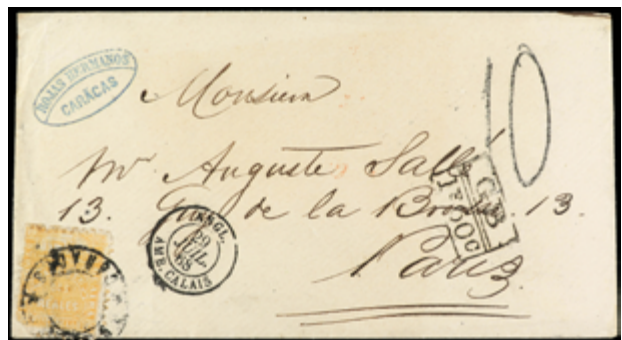 ROJAS HERMANOS
CARÁCAS
Monsieur
Mr Auguste Sallé
13. Guy de la Brosse. 13.
Paris
10
GB
1F 60c
ANGL.
29
JUIL
68
AMB. CALAIS